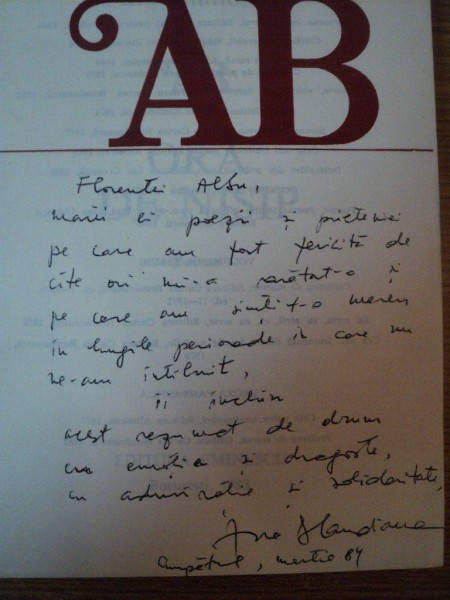 AB
ORA
DE NISIP
Florenței Albu,
marii ei poezii și prieteniei
pe care am fost fericită de
cîte ori mi-a arătat-o și
pe care am simțit-o mereu
în lungile perioade în care nu
ne-am întîlnit,
îi închin
acest rezumat de drum
cu emoție și dragoste,
cu admirație și solidaritate,
Ana Blandiana
martie 84